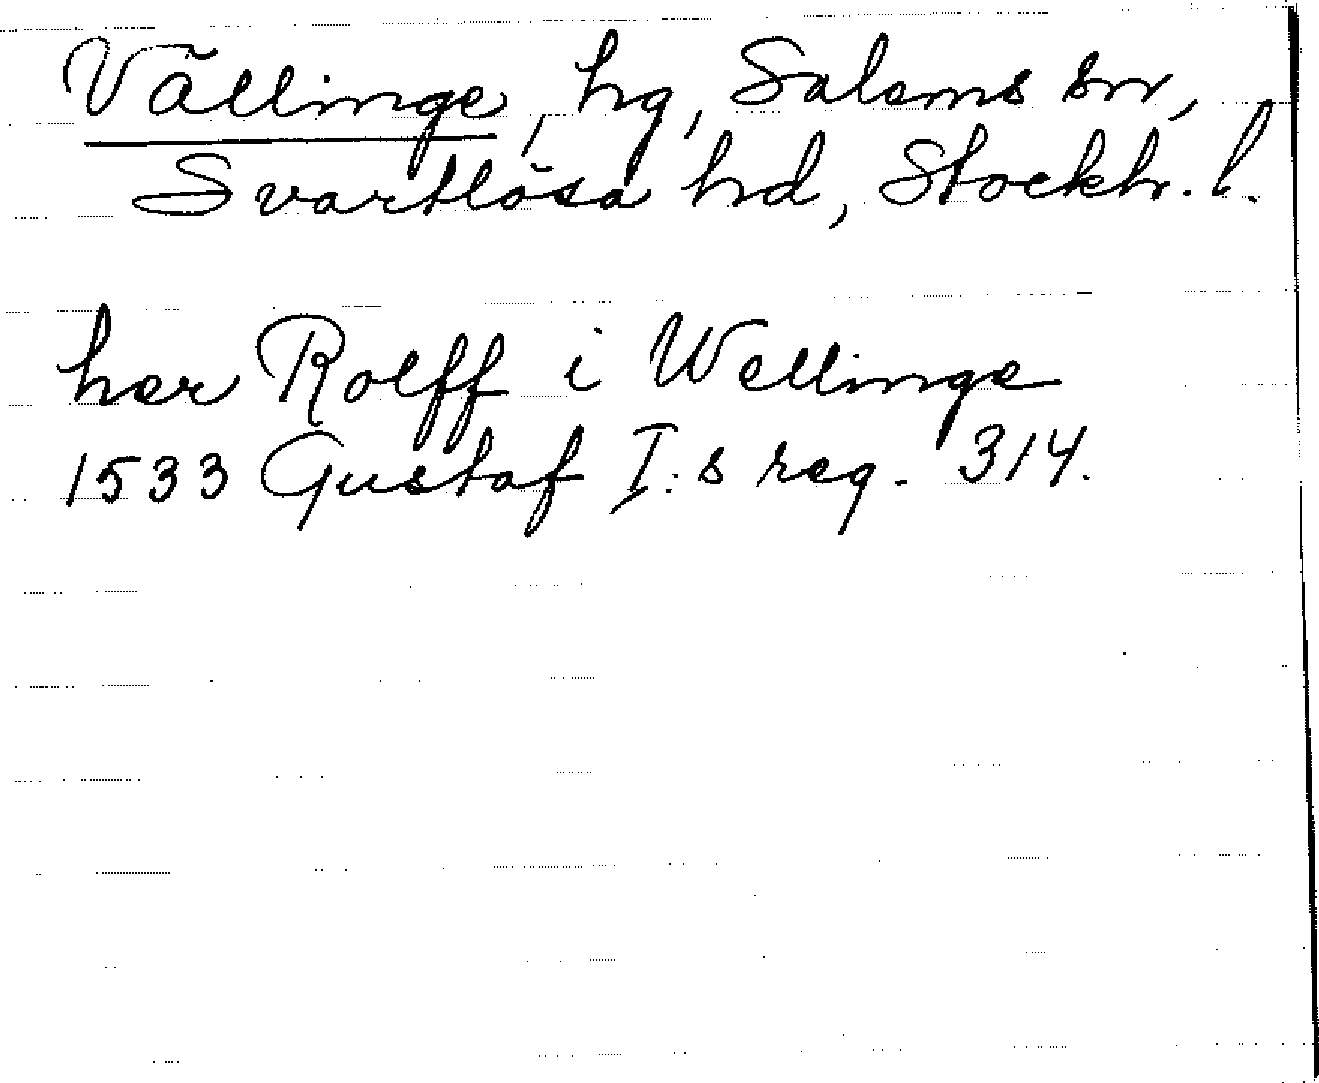 Vällinge, hg, Salems sn,
Svartlösa hd, Stockh. l.
her Rolff i Wellinge
1533 Gustaf I:s reg. 314.